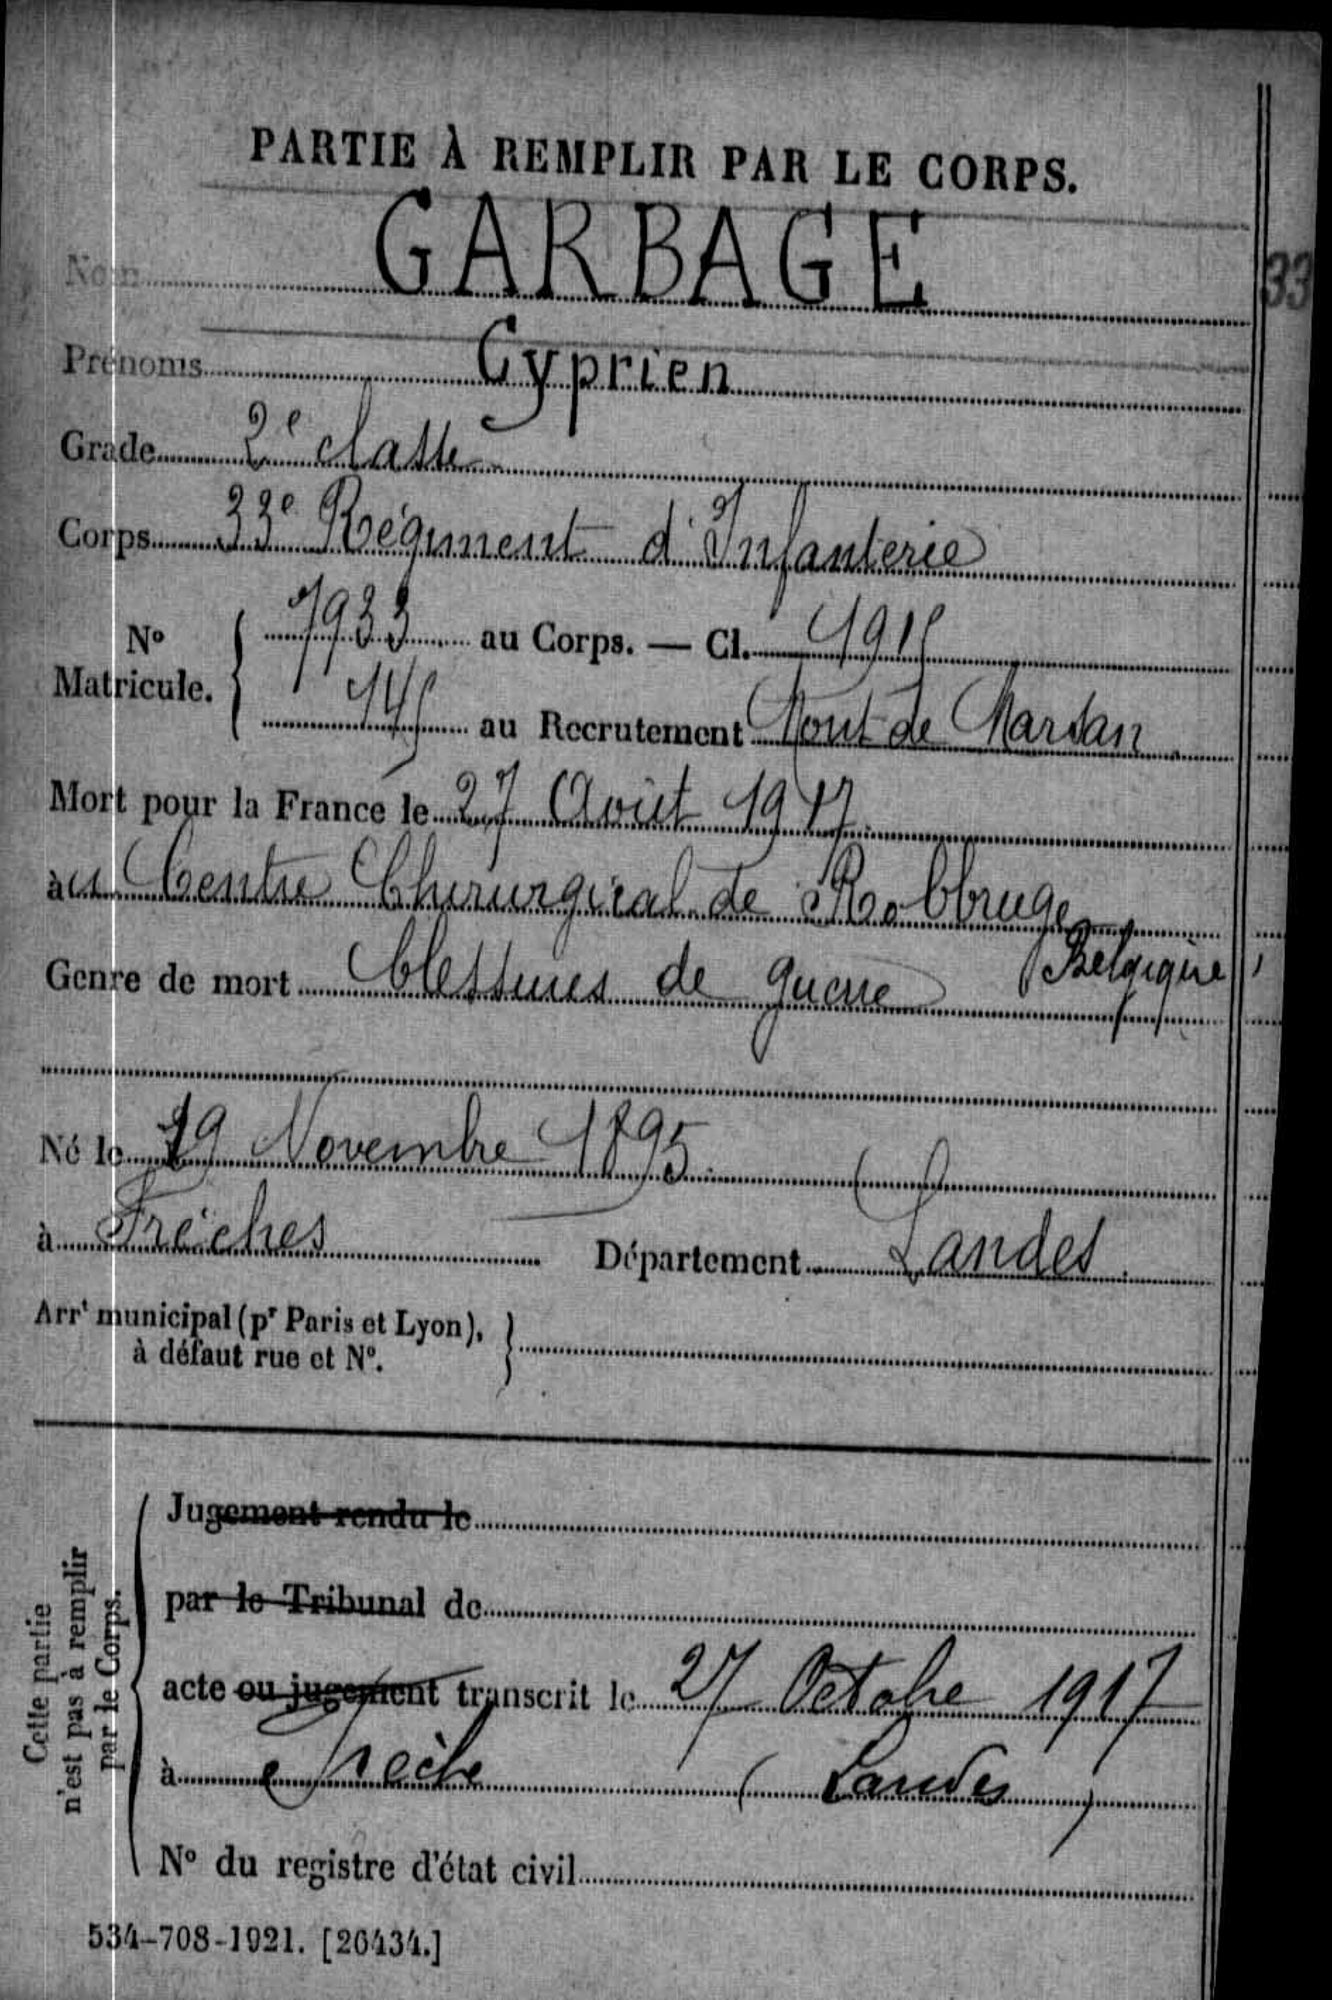 PARTIE À REMPLIR PAR LE CORPS.
Nom GARBAGE
33
Prénoms Cyprien
Grade 2e classe
Corps 33e Régiment d'Infanterie
No Matricule. { 7933 au Corps. — Cl. 1915
145 au Recrutement Mont de Marsan
Mort pour la France le 27 Août 1917
au Centre Chirurgical de
Belgique
Genre de mort blessures de guerre
Né le 29 Novembre 1895
à Frêches Département Landes
Arrt municipal (pr Paris et Lyon), à défaut rue et No. }
Cette partie n'est pas à remplir par le Corps.
Jugement rendu le
par le Tribunal de
acte ou jugement transcrit le 27 Octobre 1917
à (Landes)
No du registre d'état civil
534-708-1921. [26434.]